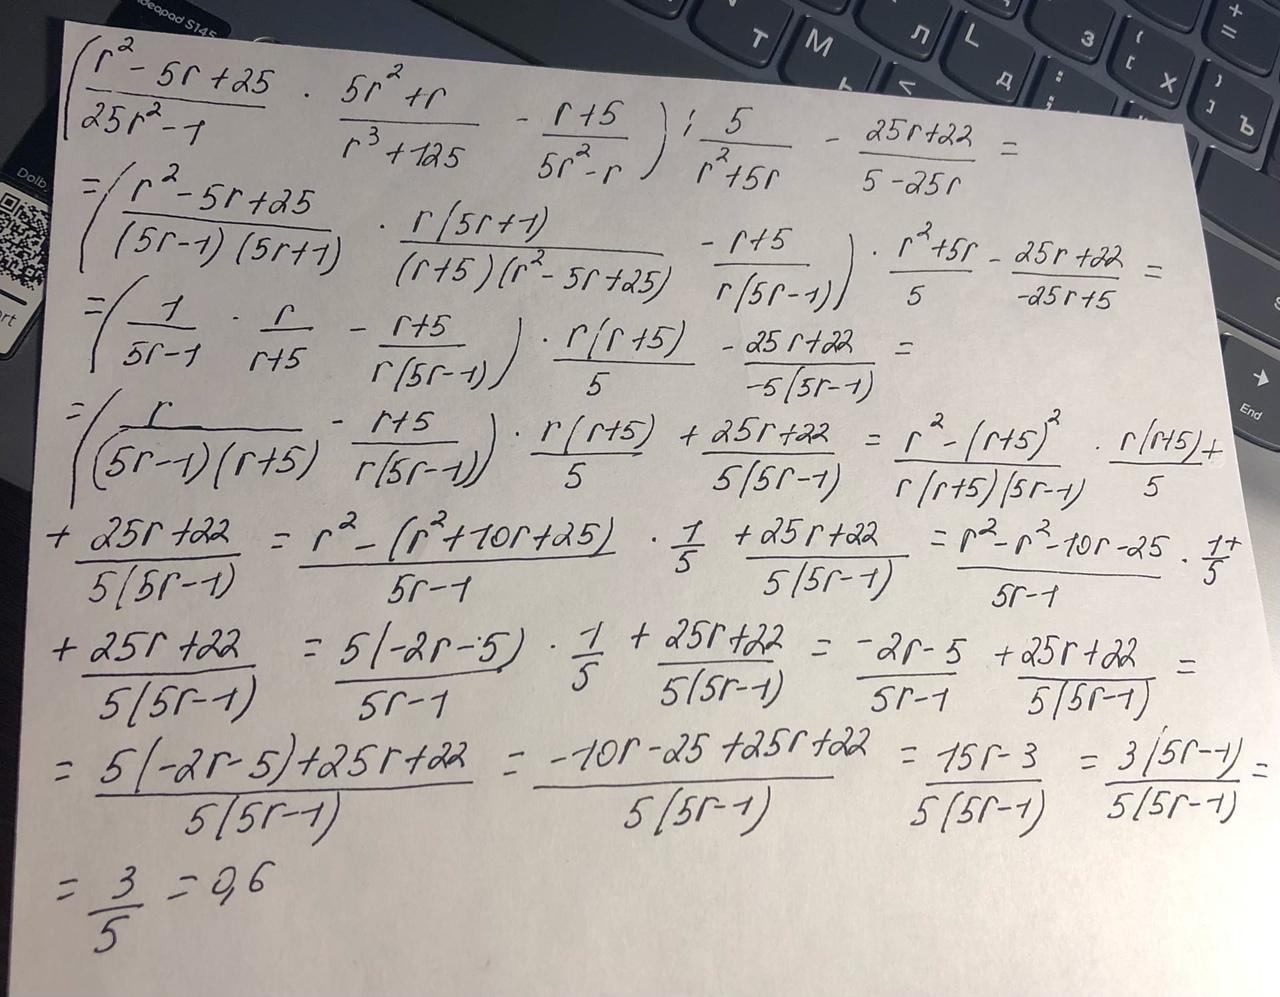 ideapad S145
( (r² - 5r + 25)/(25r² - 1) · (5r² + r)/(r³ + 125) - (r+5)/(5r² - r) ) : 5/(r² + 5r) - (25r+22)/(5 - 25r) =
= ( (r² - 5r + 25)/((5r-1)(5r+1)) · r(5r+1)/((r+5)(r² - 5r + 25)) - (r+5)/(r(5r-1)) ) · (r² + 5r)/5 - (25r+22)/(-25r+5) =
= ( 1/(5r-1) · r/(r+5) - (r+5)/(r(5r-1)) ) · r(r+5)/5 - (25r+22)/(-5(5r-1)) =
= ( r/((5r-1)(r+5)) - (r+5)/(r(5r-1)) ) · r(r+5)/5 + (25r+22)/(5(5r-1)) = (r² - (r+5)²)/(r(r+5)(5r-1)) · r(r+5)/5 +
+ (25r+22)/(5(5r-1)) = (r² - (r² + 10r + 25))/(5r-1) · 1/5 + (25r+22)/(5(5r-1)) = (r² - r² - 10r - 25)/(5r-1) · 1/5 +
+ (25r+22)/(5(5r-1)) = 5(-2r-5)/(5r-1) · 1/5 + (25r+22)/(5(5r-1)) = (-2r-5)/(5r-1) + (25r+22)/(5(5r-1)) =
= (5(-2r-5)+25r+22)/(5(5r-1)) = (-10r-25+25r+22)/(5(5r-1)) = (15r-3)/(5(5r-1)) = 3(5r-1)/(5(5r-1)) =
= 3/5 = 0,6
Dolb
Т
M
Ь
Л
<
L
Д
З
:
;
{
[
Х
}
]
Ъ
+
=
End